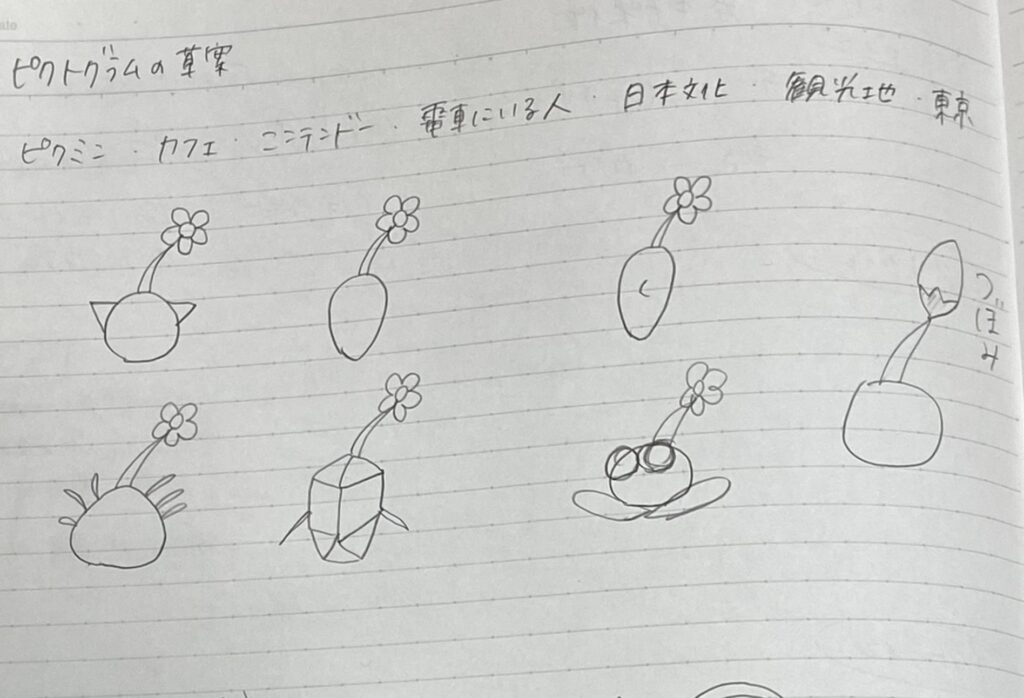 ピクトグラムの草案
ピクミン・カフェ・ニンテンドー・電車にいる人・日本文化・観光地・東京
つぼみ